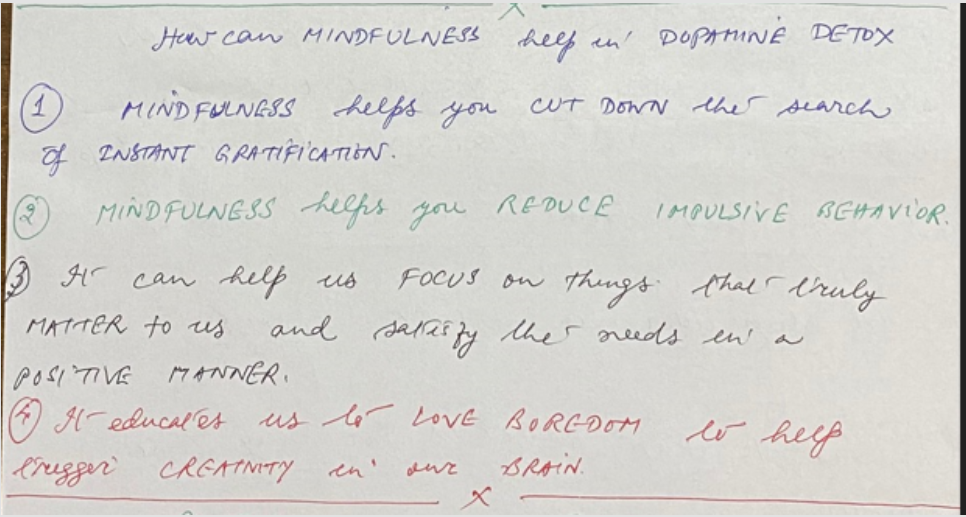 How can MINDFULNESS help in DOPAMINE DETOX
1 MINDFULNESS helps you CUT DOWN the search
of INSTANT GRATIFICATION.
2 MINDFULNESS helps you REDUCE IMPULSIVE BEHAVIOR.
3 It can help us FOCUS on things that truly
MATTER to us and satisfy the needs in a
POSITIVE MANNER.
4 It educates us to LOVE BOREDOM to help
trigger CREATIVITY in our BRAIN.
X